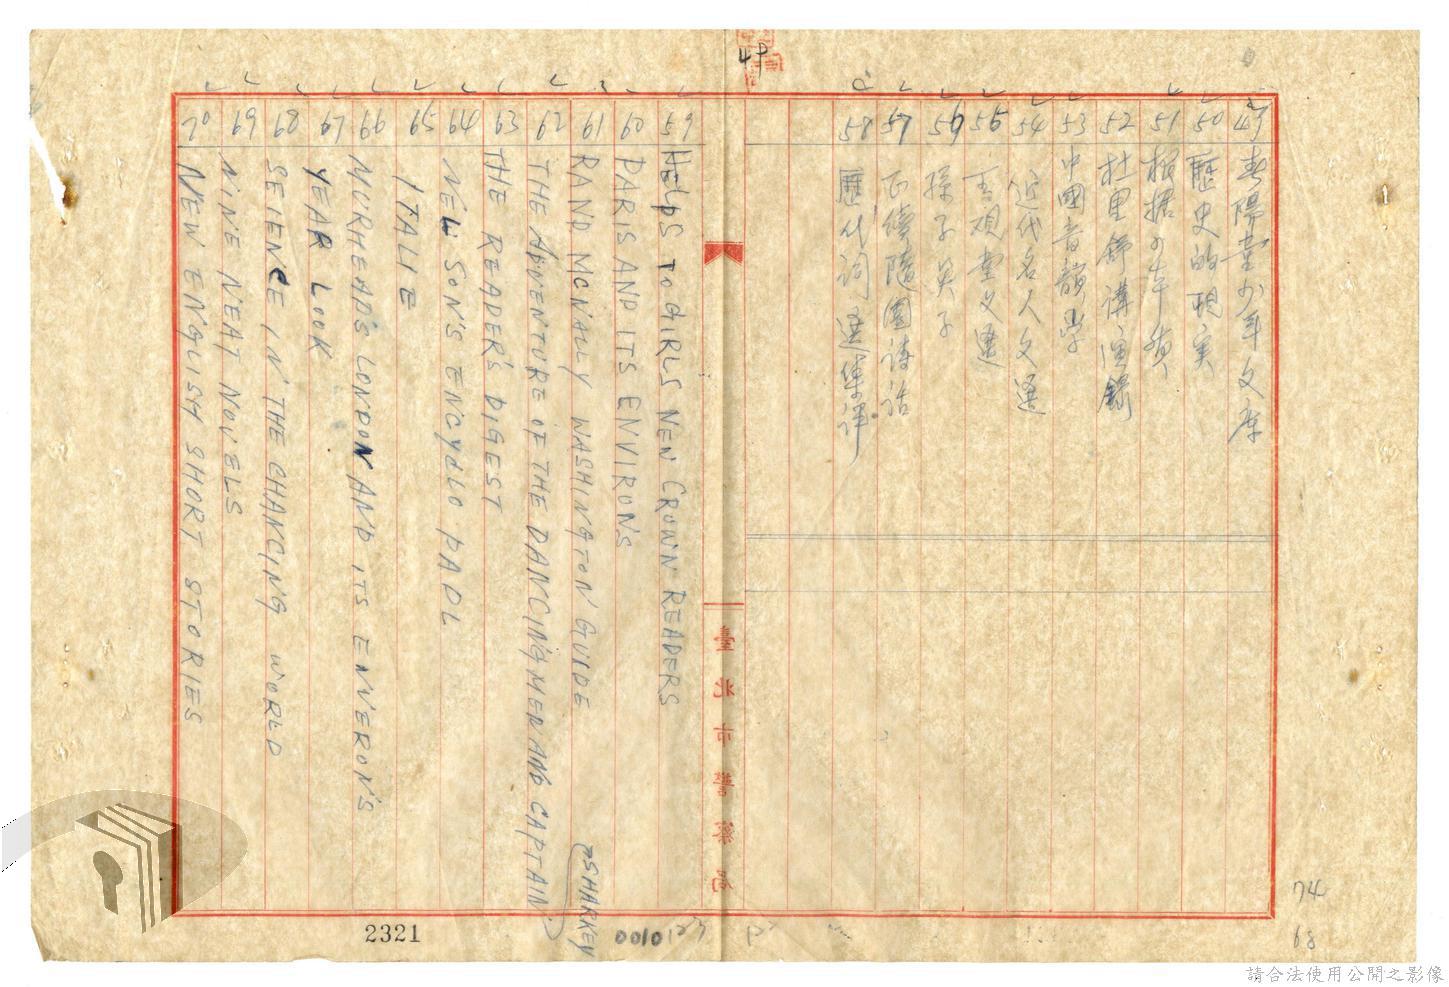 49
49 春陽堂少年文庫
50 歷史的現実
51 根据
52 杜里舒講演錄
53 中國音韻學
54 近代名人文選
55 文選
56 孫子吳子
57 正續隨園詩話
58 歷代詞選集評
臺北市警察局
59 HELPS TO GIRLS NEW CROWN READERS
60 PARIS AND ITS ENVIRON'S
61 RAND MCNALLY WASHINGTON GUIDE
62 THE ADVENTURE OF THE DANCING MEN AND CAPTAIN SHARKEY
63 THE READER'S DIGEST
64 NEL SON'S ENCYCLO PADL
65 ITALIE
66 MURHEAD'S LONDON AND ITS ENVERON'S
67 YEAR LOOK
68 SEIENCE IN THE CHANCING WORLD
69 NINE NEAT NOVELS
70 NEW ENGLISH SHORT STORIES
2321
0010123
74
68
請合法使用公開之影像